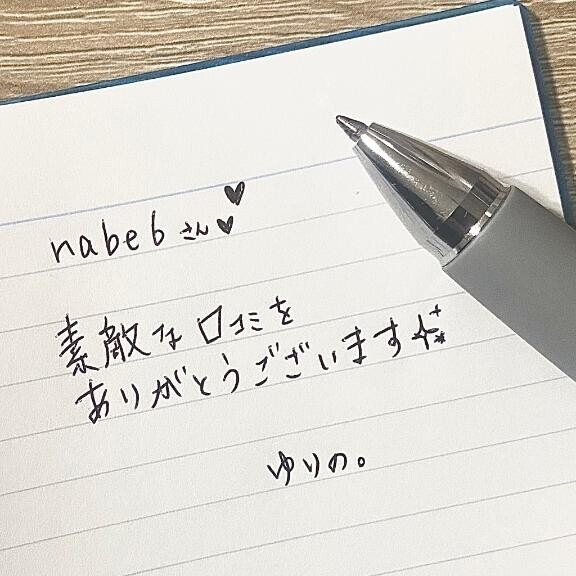 nabe6さん♥♥
素敵な口コミを
ありがとうございます✨
ゆりの。